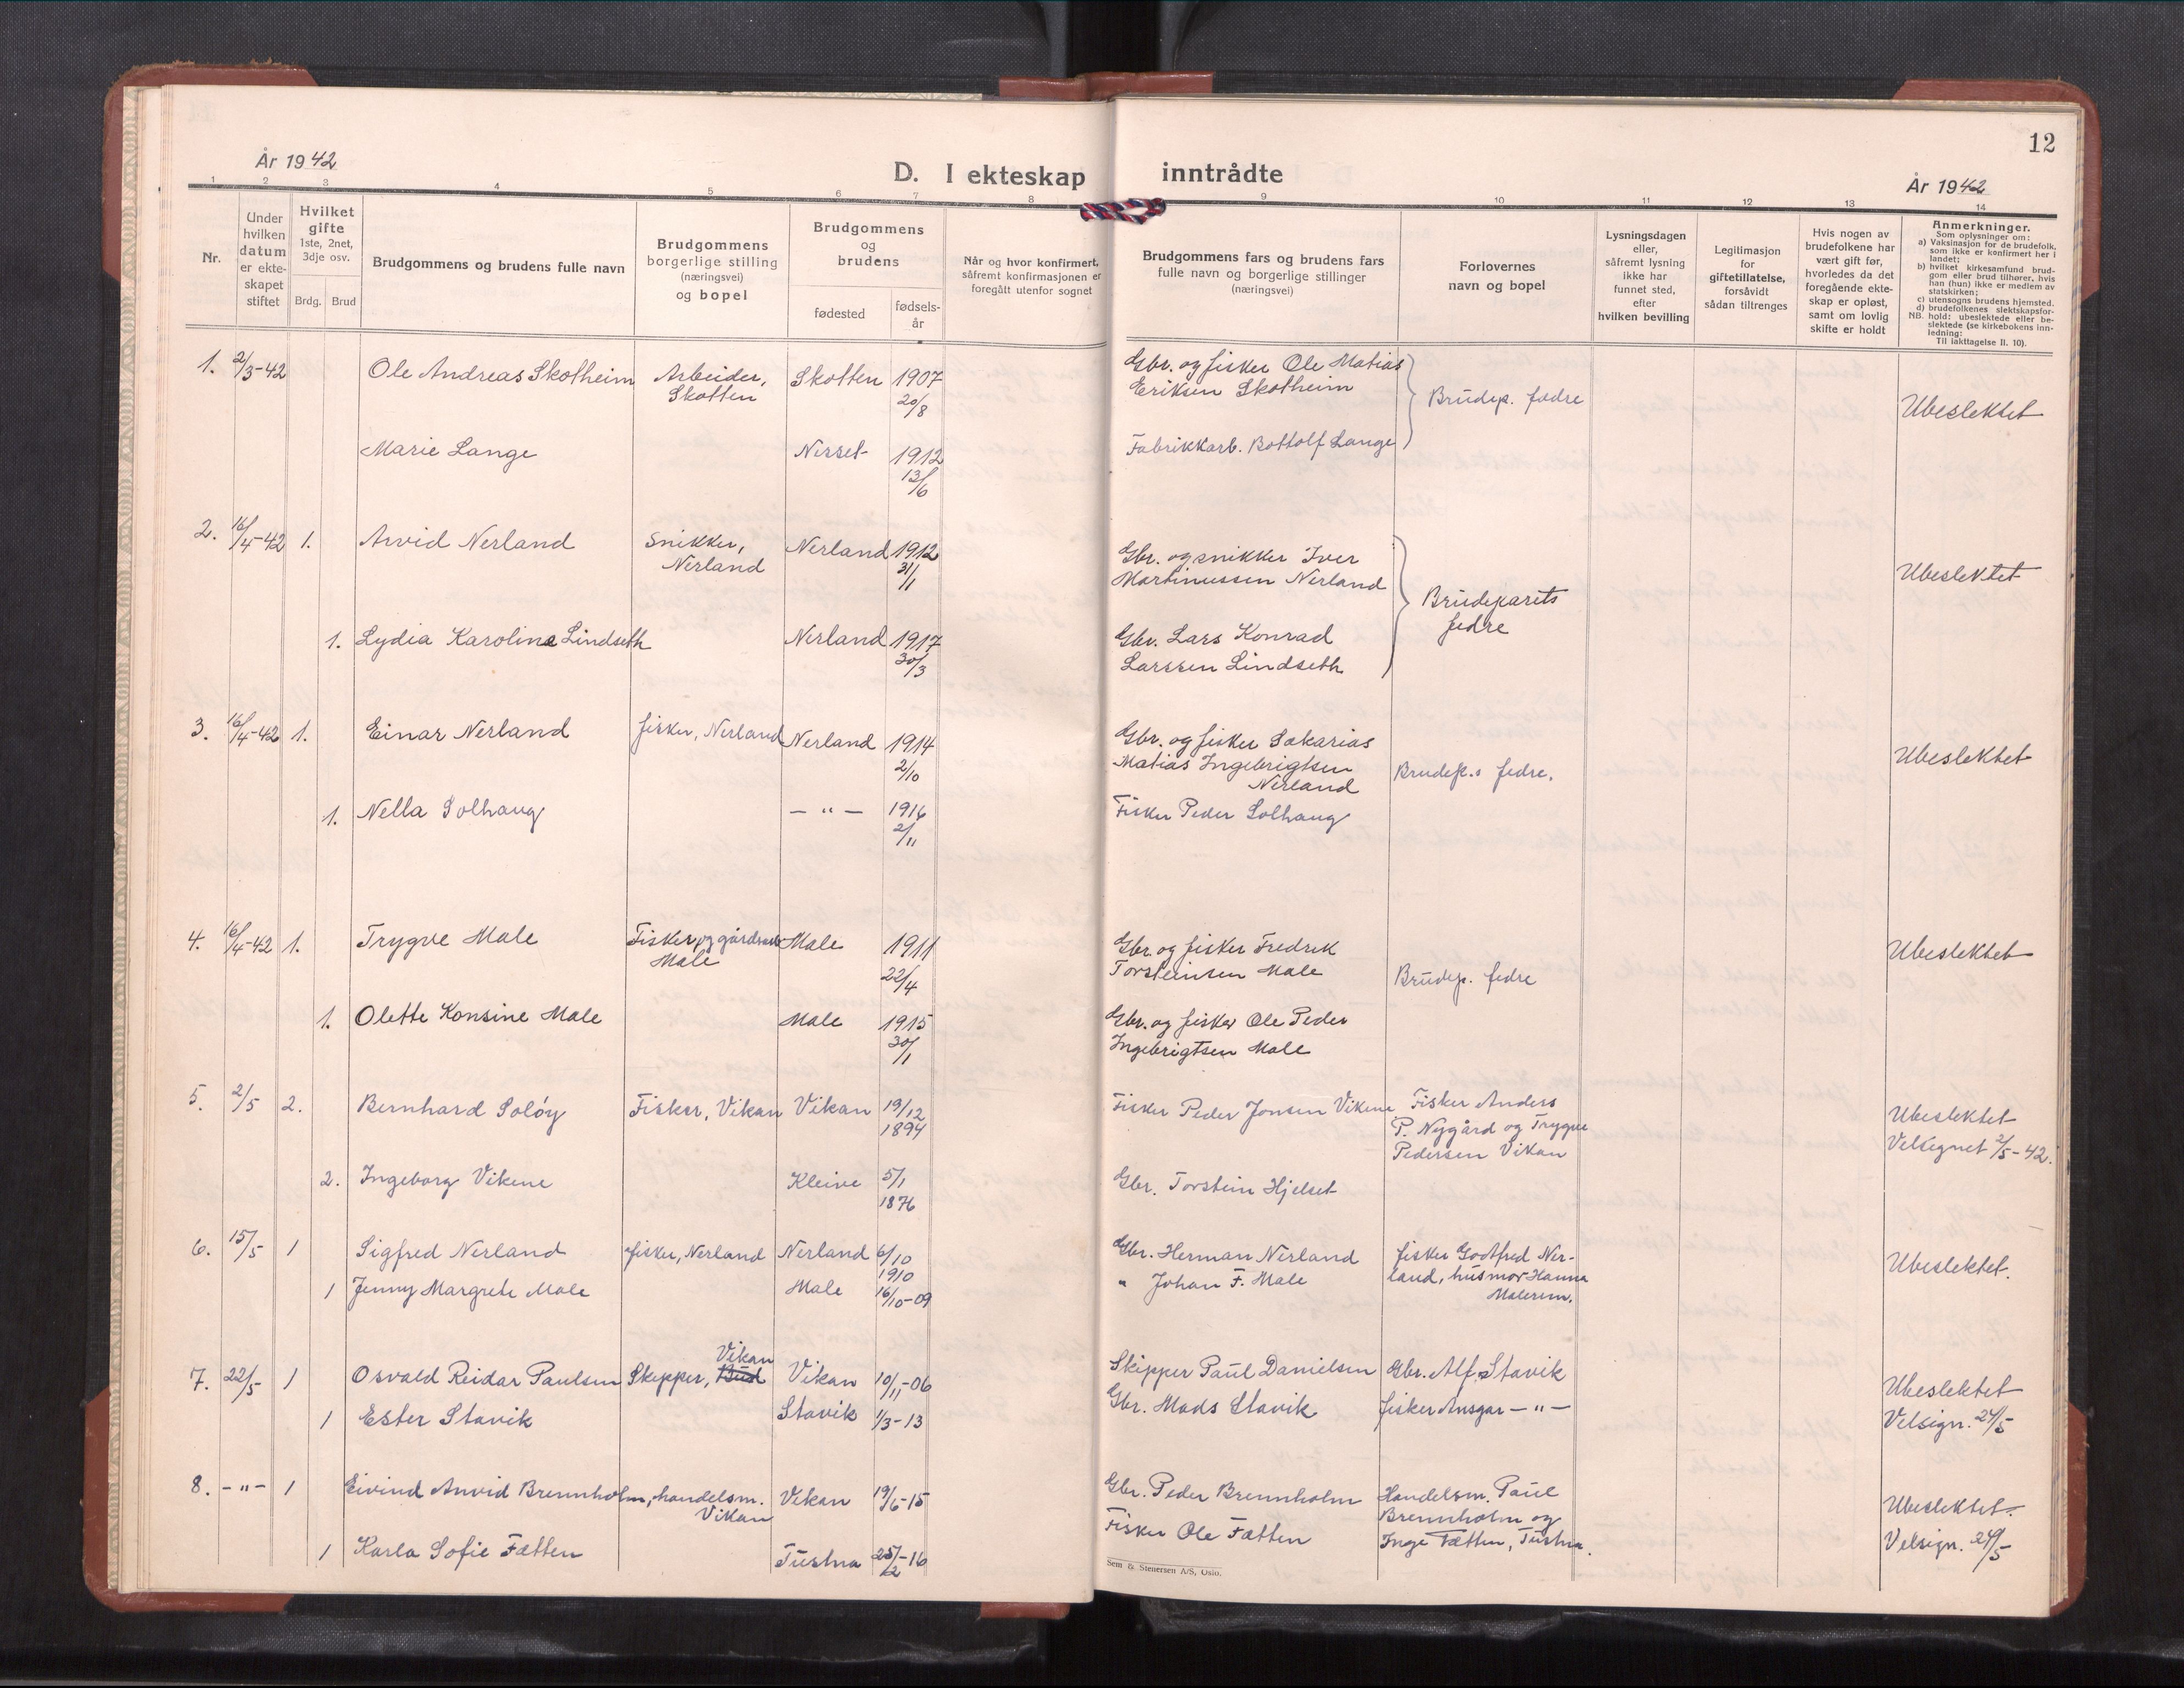 12
År 1942
D. I ekteskap inntrådte
År 1942
1 2 3 4 5 6 7 8 9 10 11 12 13 14
Nr.
Under
hvilken
datum
er ekte-
skapet
stiftet
Hvilket
gifte
1ste, 2net,
3dje osv.
Brdg. Brud
Brudgommens og brudens fulle navn
Brudgommens
borgerlige stilling
(næringsvei)
og bopel
Brudgommens
og
brudens
fødested
fødsels-
år
Når og hvor konfirmert,
såfremt konfirmasjonen er
foregått utenfor sognet
Brudgommens fars og brudens fars
fulle navn og borgerlige stillinger
(næringsvei)
Forlovernes
navn og bopel
Lysningsdagen
eller,
såfremt lysning
ikke har
funnet sted,
efter
hvilken bevilling
Legitimasjon
for
giftetillatelse,
forsåvidt
sådan tiltrenges
Hvis nogen av
brudefolkene har
vært gift før,
hvorledes da det
foregående ekte-
skap er opløst,
samt om lovlig
skifte er holdt
Anmerkninger.
Som oplysninger om:
a) Vaksinasjon for de brudefolk,
som ikke er konfirmert her i
landet;
b) hvilket kirkesamfund brud-
gom eller brud tilhører, hvis
han (hun) ikke er medlem av
statskirken;
c) utensogns brudens hjemsted.
d) brudefolkenes slektskapsfor-
NB. hold: ubeslektede eller be-
slektede (se kirkebokens inn-
ledning:
Til iakttagelse II. 10).
1. 2/3-42 Ole Andreas Skotheim Arbeider, Skotten 1907 Gbr. og fisker Ole Matias
Skotten 20/8 Eriksen Skotheim Brudep. fedre Ubeslektet
Marie Lange Nesset 1912 Fabrikkarb. Bottolf Lange
13/6
2. 16/4-42 1. Arvid Nerland Snikker, Nerland 1912 Gbr. og snikker Iver
Nerland 31/1 Martinussen Nerland Brudeparets Ubeslektet
fedre
1. Lydia Karoline Lindseth Nerland 1917 Gbr. Lars Konrad
30/3 Larssen Lindseth
3. 16/4-42 1. Einar Nerland fisker, Nerland Nerland 1914 Gbr. og fisker Sakarias
2/10 Matias Ingebrigtsen Brudep.s fedre. Ubeslektet
Nerland
1. Nella Solhaug — " — 1916 Fisker Peder Solhaug
2/11
4. 16/4-42 1. Trygve Male Fisker og gårdsarb. Male 1911 Gbr. og fisker Fredrik
Male 22/4 Torsteinsen Male Brudep. fedre Ubeslektet
1. Olette Konsine Male Male 1915 Gbr. og fisker Ole Peder
30/1 Ingebrigtsen Male
5. 2/5 2. Bernhard Soløy Fisker, Vikan Vikan 19/12 Fisker Peder Jonsen Vikene Fisker Anders Ubeslektet
1894 P. Nygård og Trygve Velsignet 2/5-42.
Pedersen Vikan
2. Ingeborg Vikene Kleive 5/1 Gbr. Torstein Hjelset
1876
6. 15/5 1 Sigfred Nerland fisker, Nerland Nerland 6/10 Gbr. Herman Nerland fisker Godtfred Ner- Ubeslektet.
1910
1 Jenny Margrete Male Male 16/10-09 " Johan F. Male land, husmor Hanna
Malerem.
Vikan
7. 22/5 1 Osvald Reidar Paulsen Skipper, Bud Vikan 10/11-06 Skipper Paul Danielsen Gbr. Alf Stavik Ubeslektet
1 Ester Stavik Stavik 1/3-13 Gbr. Mads Stavik fisker Ansgar — " — Velsign. 24/5
8. - " - 1 Eivind Anvid Brennholm, handelsm. Vikan 19/6-15 Gbr. Peder Brennholm Handelsm. Paul Ubeslektet.
Vikan Brennholm og
1 Karla Sofie Fætten Tustna 25/2-16 Fisker Ole Fætten Inge Fætten, Tustna. Velsign. 24/5
Sem & Stenersen A/S, Oslo.